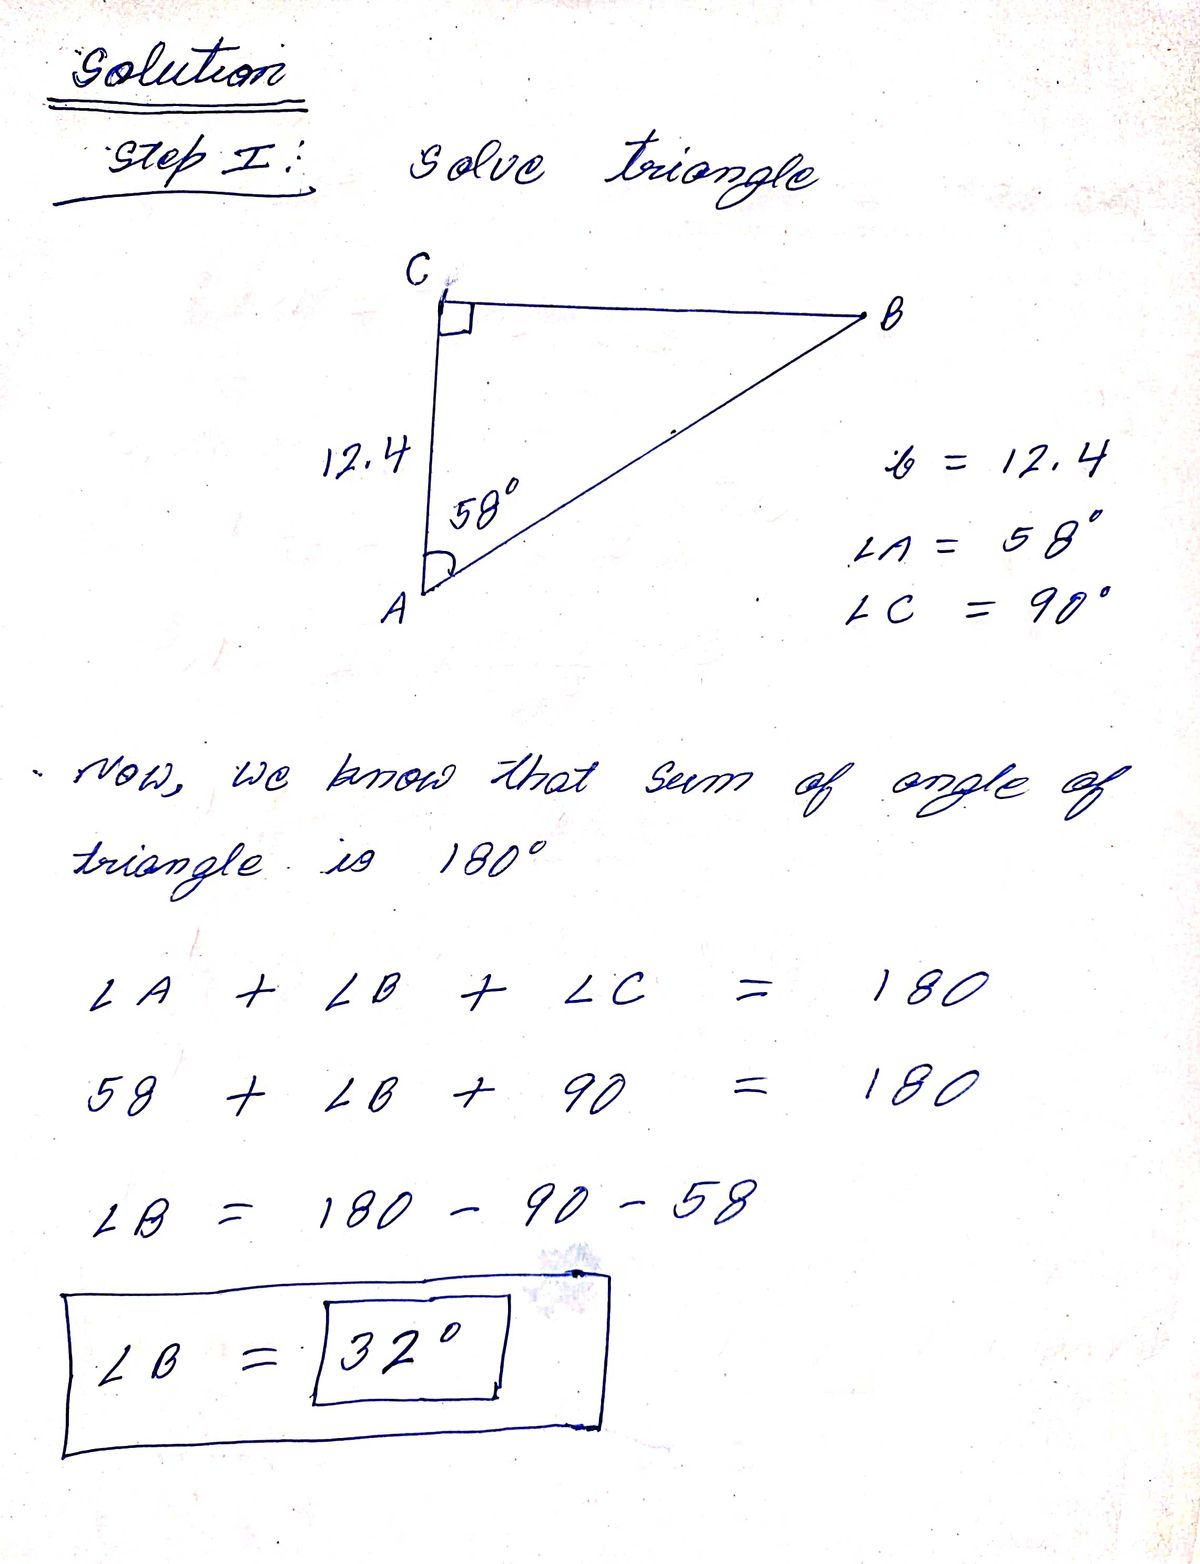 Solution
Step I: Solve triangle
C
B
12.4
b = 12.4
58°
∠A = 58°
A
∠C = 90°
Now, we know that sum of angle of
triangle is 180°
∠A + ∠B + ∠C = 180
58 + ∠B + 90 = 180
∠B = 180 - 90 - 58
∠B = 32°